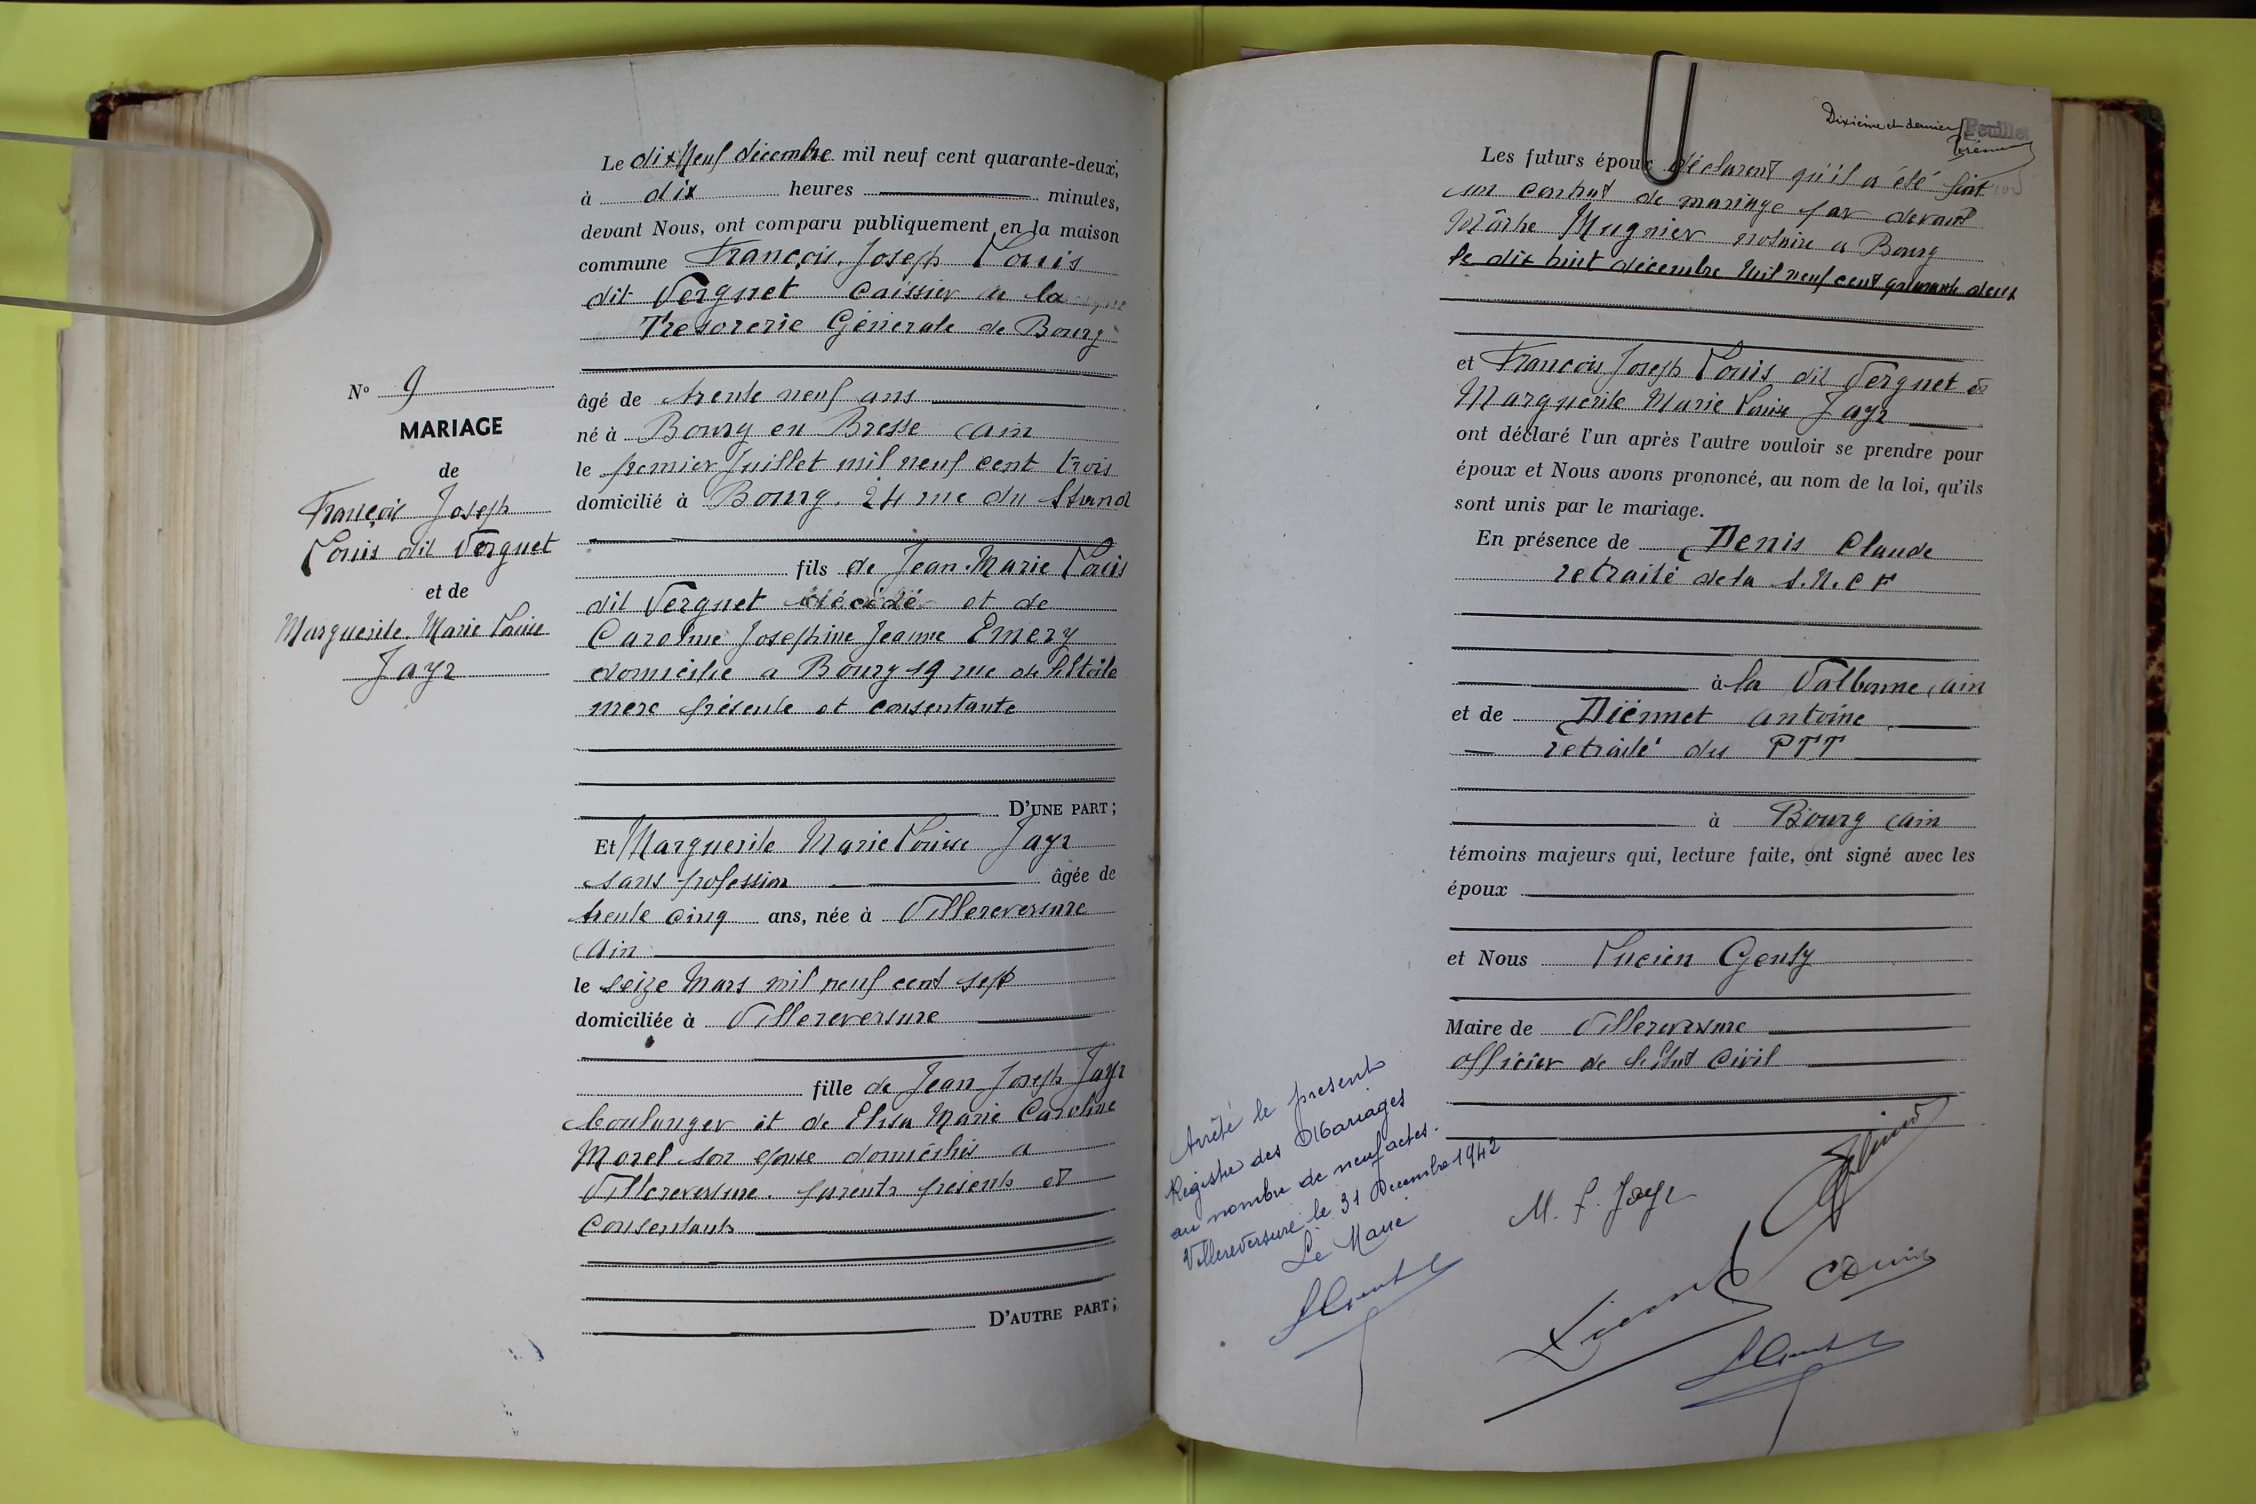 Le dix Neuf décembre mil neuf cent quarante-deux,
à dix heures minutes,
devant Nous, ont comparu publiquement en la maison
commune François Joseph Louis
dit Vergnet Caissier de la
Trésorerie Générale de Bourg
N° 9
MARIAGE
de
François Joseph
Louis dit Vergnet
et de
Marguerite Marie Louise
Jayr
âgé de trente neuf ans
né à Bourg en Bresse Ain
le premier Juillet mil neuf cent trois
domicilié à Bourg. 24 rue du Stand
fils de Jean Marie Louis
dit Vergnet décédé et de
Caroline Josephine Jeanne Emery
domicilie a Bourg 19 rue de l'Etoile
mere présente et consentante
D'UNE PART;
Et Marguerite Marie Louise Jayr
sans profession âgée de
trente cinq ans, née à Villereversure
Ain
le seize Mars mil neuf cent sept
domiciliée à Villereversure
fille de Jean Joseph Jayr
boulanger et de Elisa Marie Caroline
Morel son épouse domiciliés a
Villereversure. parents présents et
consentants
D'AUTRE PART;
Dixième et dernier Feuillet
Les futurs époux déclarent qu'il a été fait
un contrat de mariage par devant
Maître Mugnier notaire a Bourg
le dix huit décembre mil neuf cent quarante deux
et François Joseph Louis dit Vergnet et
Marguerite Marie Louise Jayr
ont déclaré l'un après l'autre vouloir se prendre pour
époux et Nous avons prononcé, au nom de la loi, qu'ils
sont unis par le mariage.
En présence de Denis Claude
retraité de la S.N.C.F
à la Valbonne Ain
et de Diënnet Antoine
retraité des PTT
à Bourg Ain
témoins majeurs qui, lecture faite, ont signé avec les
époux
et Nous Lucien Genty
Maire de Villereversure
officier de l'Etat Civil
Arrêté le présent
Registre des Mariages
au nombre de neuf actes.
Villereversure le 31 Décembre 1942
Le Maire
M. L. Jayr